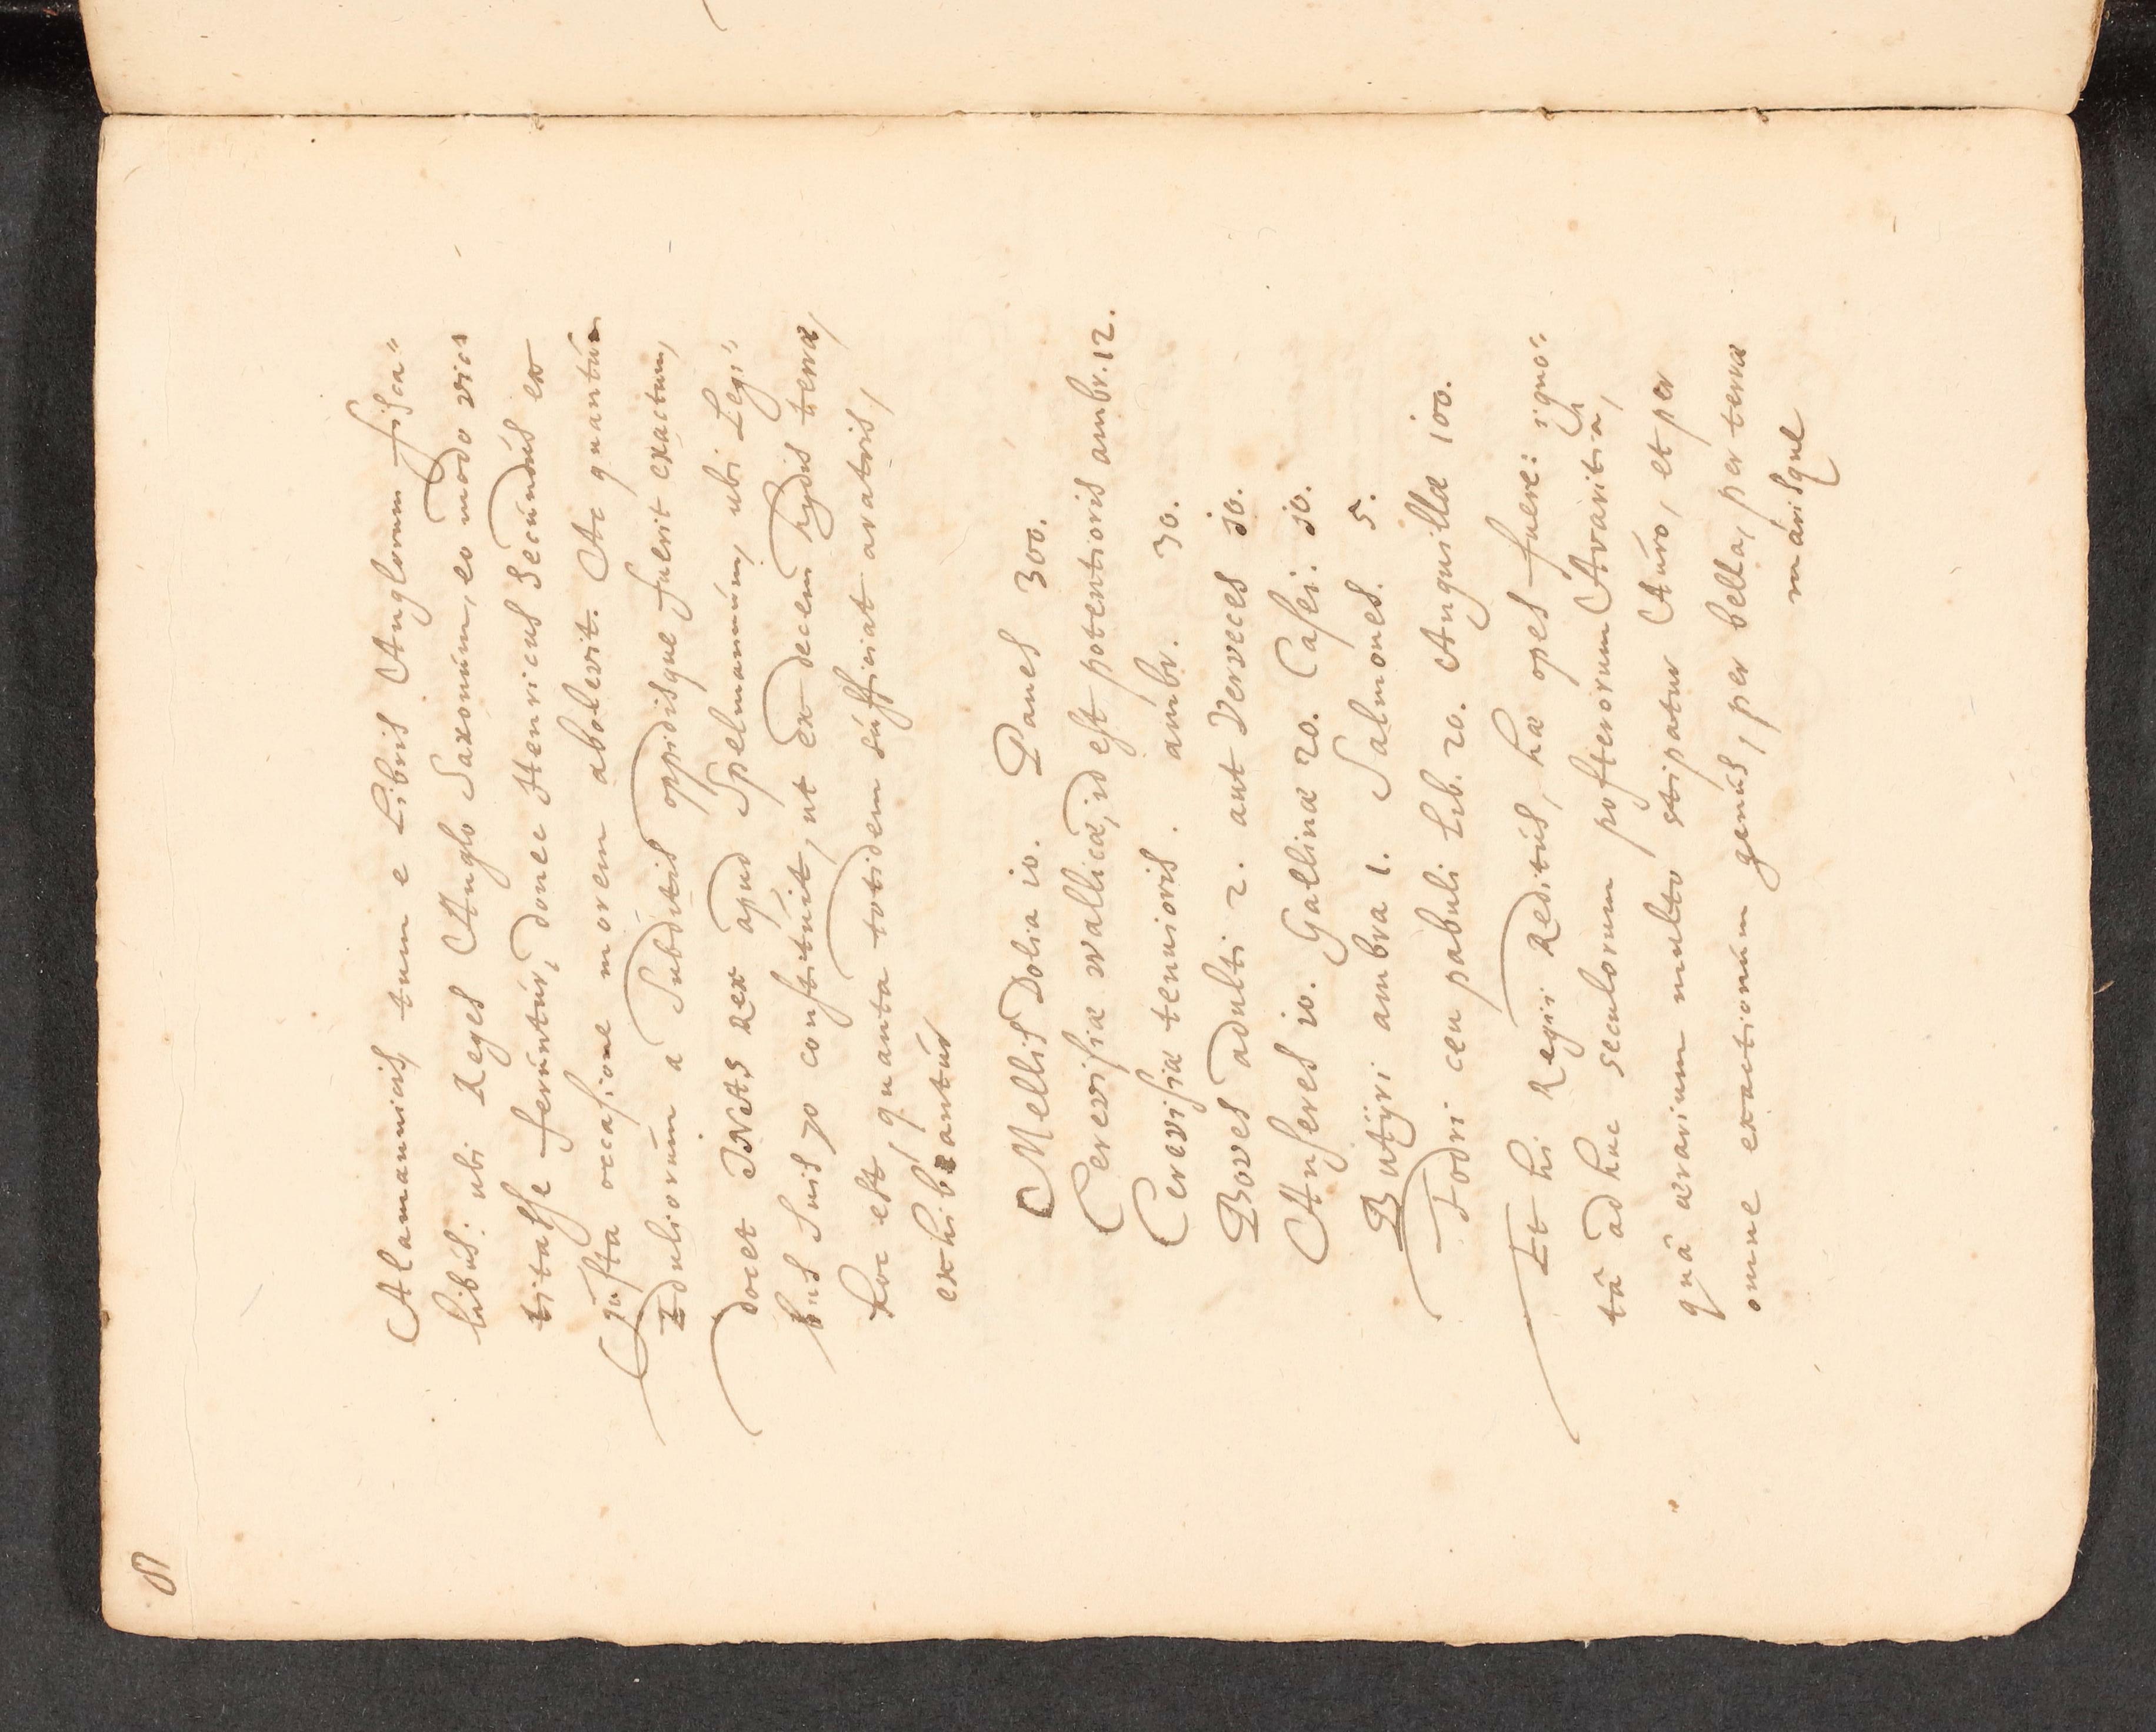 8
Alamannicis, tum e Libris Anglorum fisca"
libus: ubi Reges Anglo Saxonum, eo modo vic⁠
titasse feruntur, donec Henricus Secundus ex
justa occasione morem abolevit. Ac quantum
Eduliorum a Subditis oppidisque fuerit exactum,
docet INAS Rex apud Spelmannum, ubi Legi"
bus Suis 70 constituit, ut ex decem hydis terræ,
hoc est, quanta totidem sufficiat aratris,
exhibeantur
Mellis Dolia 10. Panes 300.
Cerevisiæ wallicæ, id est potentioris ambr. 12.
Cerevisiæ tenuioris. ambr. 30.
Boves adulti 2. aut Verveces 10.
Anseres 10. Gallinæ 20. Casei. 10.
Butÿri ambra 1. Salmones. 5.
Fodri ceu pabuli Lib. 20. Anguillæ 100.
Et hi Regii Reditus, hæ opes fuere: igno"
tâ adhuc seculorum posterorum Avaritiâ,
quâ ærarium multo stipatur Auro, et per
omne exactionum genus, per bella, per terræ
marisque